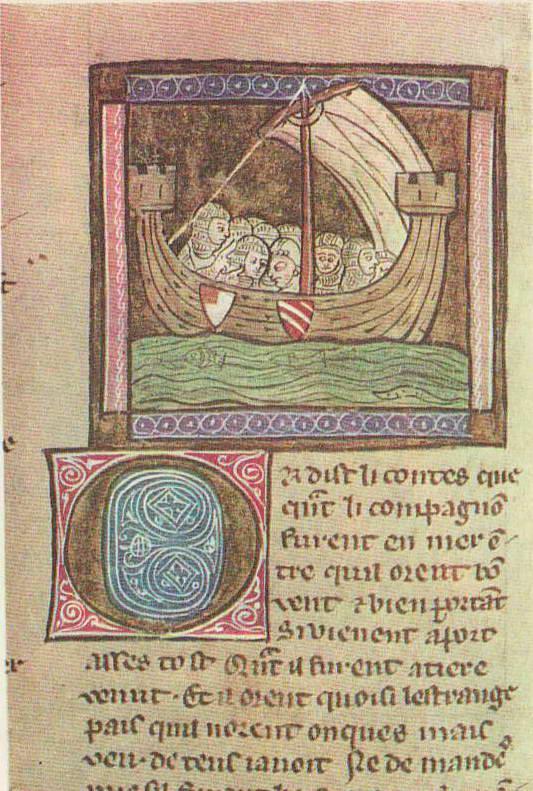 Or dist li contes que
q̃nt li compagnõ
furent en mer ẽ-
tre quil orent bõ
vent ⁊ bien portãt
Si vienent a port
asses tost Q̃nt il furent a tiere
venut. Et il orent quoisi lestrange
pais quil norent onques mais
veu. de teus i avoit Ne de mandẽ